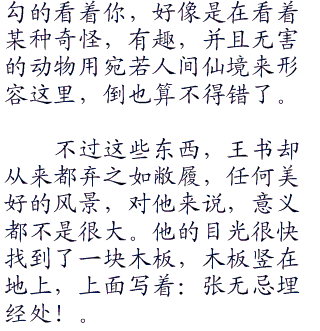 勾的看着你，好像是在看着
某种奇怪，有趣，并且无害
的动物用宛若人间仙境来形
容这里，倒也算不得错了。
不过这些东西，王书却
从来都弃之如敝履，任何美
好的风景，对他来说，意义
都不是很大。他的目光很快
找到了一块木板，木板竖在
地上，上面写着：张无忌埋
经处！。